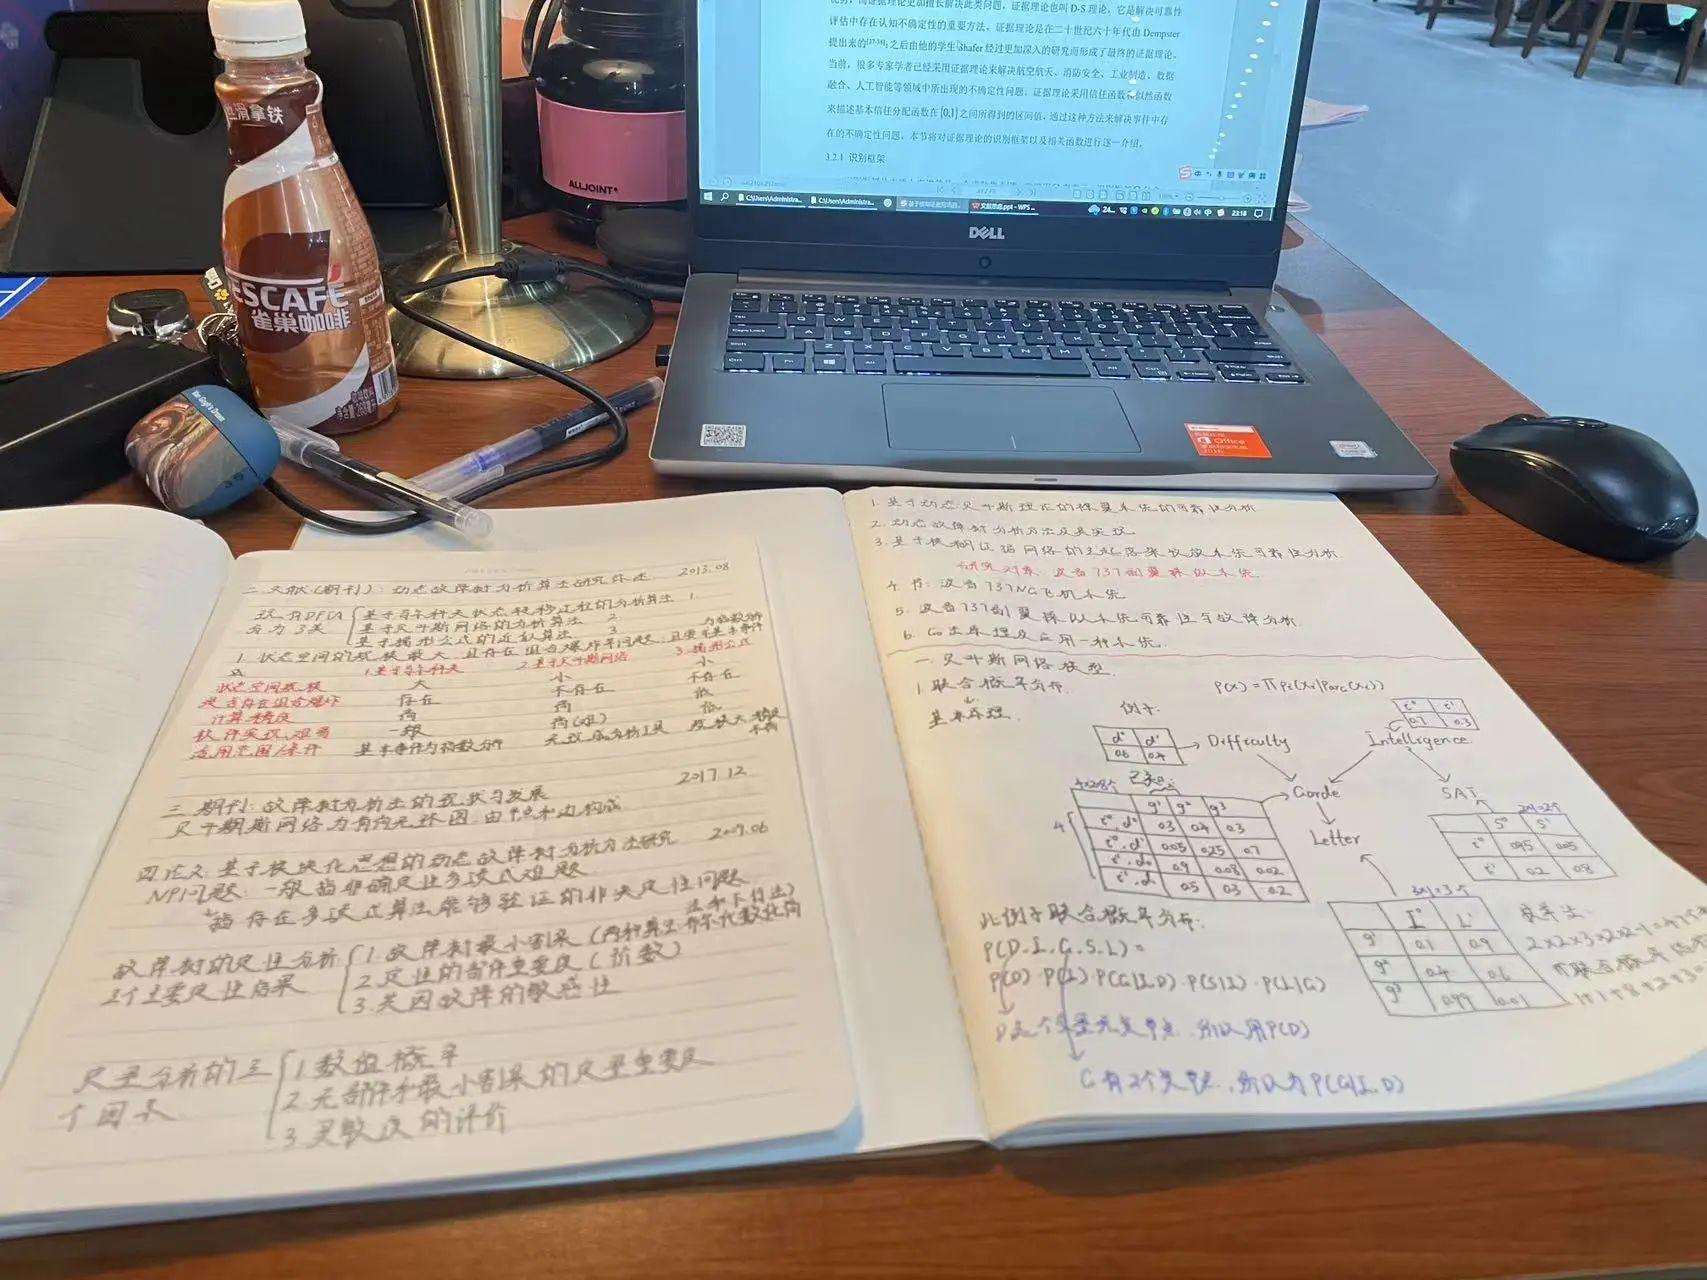 丝滑拿铁
ESCAFÉ
雀巢咖啡
ALLJOINT
Van Gogh's Dream
证据理论更加擅长解决此类问题，证据理论也叫 D-S 理论，它是解决可靠性
评估中存在认知不确定性的重要方法。证据理论是在二十世纪六十年代由 Dempster
提出来的；之后由他的学生 Shafer 经过更加深入的研究而形成了最终的证据理论。
当前，很多专家学者已经采用证据理论来解决航空航天、消防安全、工业制造、数据
融合、人工智能等领域中所出现的不确定性问题。证据理论采用信任函数和似然函数
来描述基本信任分配函数在 [0,1] 之间所得到的区间值，通过这种方法来解决事件中存
在的不确定性问题。本节将对证据理论的识别框架以及相关函数进行逐一介绍。
3.2.1 识别框架
C:\Users\Administra...
C:\Users\Administra...
文献总结.ppt - WPS ...
23:18
DELL
Office
2016
二 文献(期刊): 动态故障树分析算法研究综述. 2013.08
现有DFTA 基于马尔科夫状态转移过程的分析算法 1.
分为3类 基于贝叶斯网络的分析算法 2.
基于梯形公式的近似算法 3.
1. 状态空间的规模最大 且存在组合爆炸等问题, 且要求基本事件
为指数分布
1.基于马尔科夫 2.基于贝叶斯网络 3.梯形公式
状态空间规模 大 小 小
是否存在组合爆炸 存在 不存在 不存在
计算精度 高 高 低
软件实现难易 一般 高(难) 低
适用范围/条件 基本事件为指数分布
2017.12
三 期刊: 故障树分析法的现状与发展
贝叶斯网络为有向无环图 由节点和边构成
四 论文: 基于模块化思想的动态故障树分析方法研究 2009.06
NP问题: 一般指非确定性多项式难题
指存在多项式算法能够验证的非决定性问题
故障树的定性分析 1. 故障树最小割集 (两种算法: 布尔代数化简
法和下行法)
3个主要定性结果 2. 定性的部件重要度 (阶数)
3. 共因故障的敏感性
定量分析的三 1. 数值概率
个因素 2. 元部件和最小割集的定量重要度
3. 灵敏度的评价
1. 基于动态贝叶斯理论的襟翼系统的可靠性分析
2. 动态故障树分析方法及其实现
3. 基于模糊证据网络的主起落架收放系统可靠性分析.
研究对象: 波音737副翼操纵系统.
4. 书: 波音737NG飞机系统
5. 波音737副翼操纵系统可靠性与故障分析
6. Go法原理及应用 一种系统.
一. 贝叶斯网络模型
1. 联合概率分布. P(x)=∏Pi(xi|Parc(xi))
基本原理. 例子:
i⁰ i¹
0.7 0.3
d⁰ d¹
0.6 0.4
Difficulty
Intelligence
Garde
SAT
Letter
4×2=8个
g¹ g² g³
i⁰,d⁰ 0.3 0.4 0.3
i⁰,d¹ 0.05 0.25 0.7
i¹,d⁰ 0.9 0.08 0.02
i¹,d¹ 0.5 0.3 0.2
4
2×1=2个
S⁰ S¹
i⁰ 0.95 0.05
i¹ 0.2 0.8
3×1=3个
L⁰ L¹
g¹ 0.1 0.9
g² 0.4 0.6
g³ 0.99 0.01
2×2×3×2×2-1=47个
1+1+8+2+3=
此例子联合概率分布:
P(D.I.G.S.L)=
P(D)·P(I)·P(G|I.D)·P(S|I)·P(L|G)
D这个变量无父节点, 所以用P(D)
G有2个父节点, 所以为P(G|I.D)